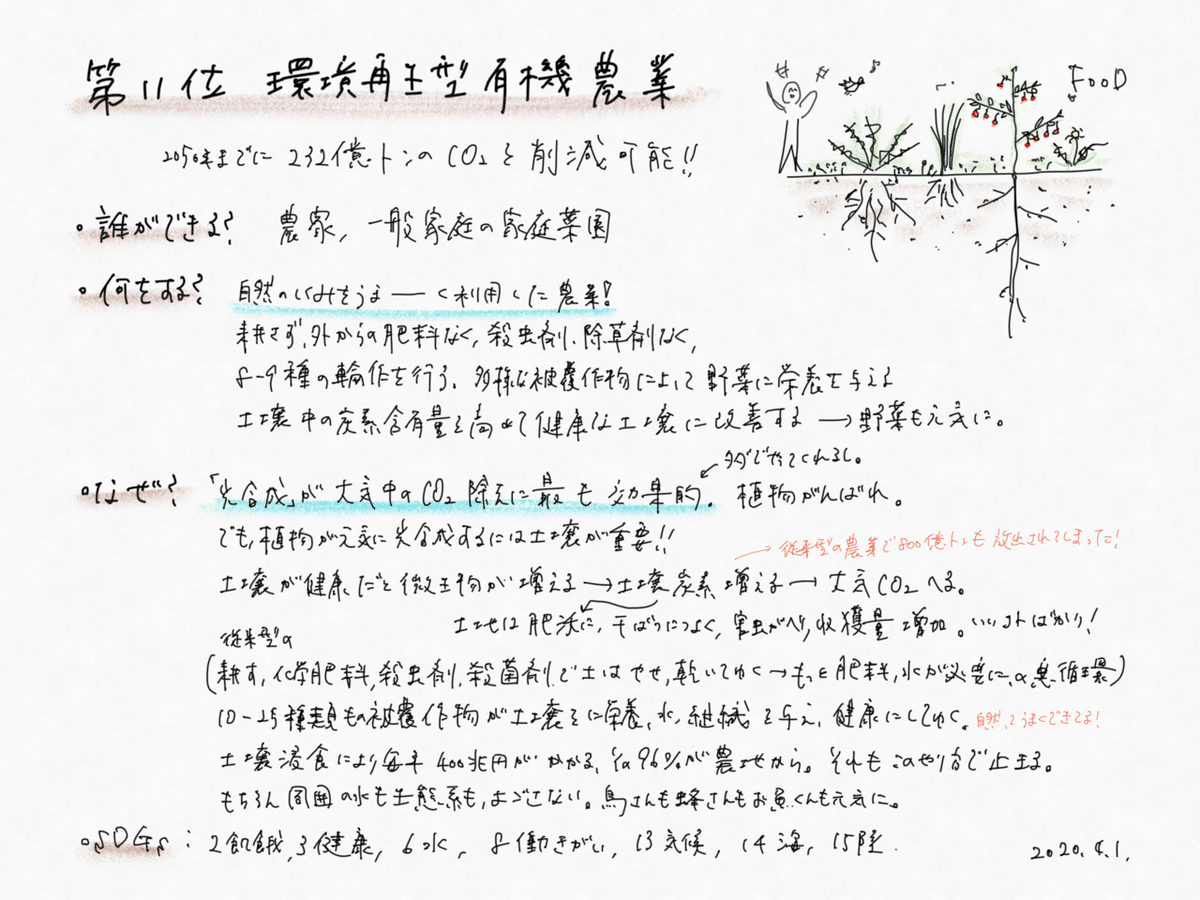 第11位 環境再生型有機農業
FOOD
2050年までに232億トンのCO2を削減可能!!
・誰ができる? 農家, 一般家庭の家庭菜園
・何をする? 自然のしくみをうま──く利用した農業!
耕さず, 外からの肥料なく, 殺虫剤、除草剤なく,
8-9種の輪作を行う、多様な被覆作物によって野菜に栄養を与える
土壌中の炭素含有量を高めて健康な土壌に改善する → 野菜も元気に。
タダでやってくれるし。
・なぜ? 「光合成」が大気中のCO2除去に最も効果的. 植物がんばれ。
でも, 植物が元気に光合成するには土壌が重要!!
→ 従来型の農業で800億トンも放出されてしまった!
土壌が健康だと微生物が増える → 土壌炭素増える → 大気CO2へる。
土地は肥沃に, 干ばつにつよく, 害虫がへり, 収穫量増加。いいコトばかり!
従来型の
(耕す, 化学肥料, 殺虫剤, 殺菌剤で土はやせ, 乾いてゆく → もっと肥料, 水が必要に, の悪循環)
10-25種類もの被覆作物が土壌そに栄養, 水, 組織を与え, 健康にしてゆく。自然ってうまくできてる!
土壌浸食により毎年400兆円がかかる, その96%が農地から。それもこのやり方で止まる。
もちろん周囲の水も生態系も, よごさない。鳥さんも蜂さんもお魚くんも元気に。
・SDGs: 2飢餓, 3健康, 6水, 8働きがい, 13気候, 14海, 15陸.
2020.4.1.